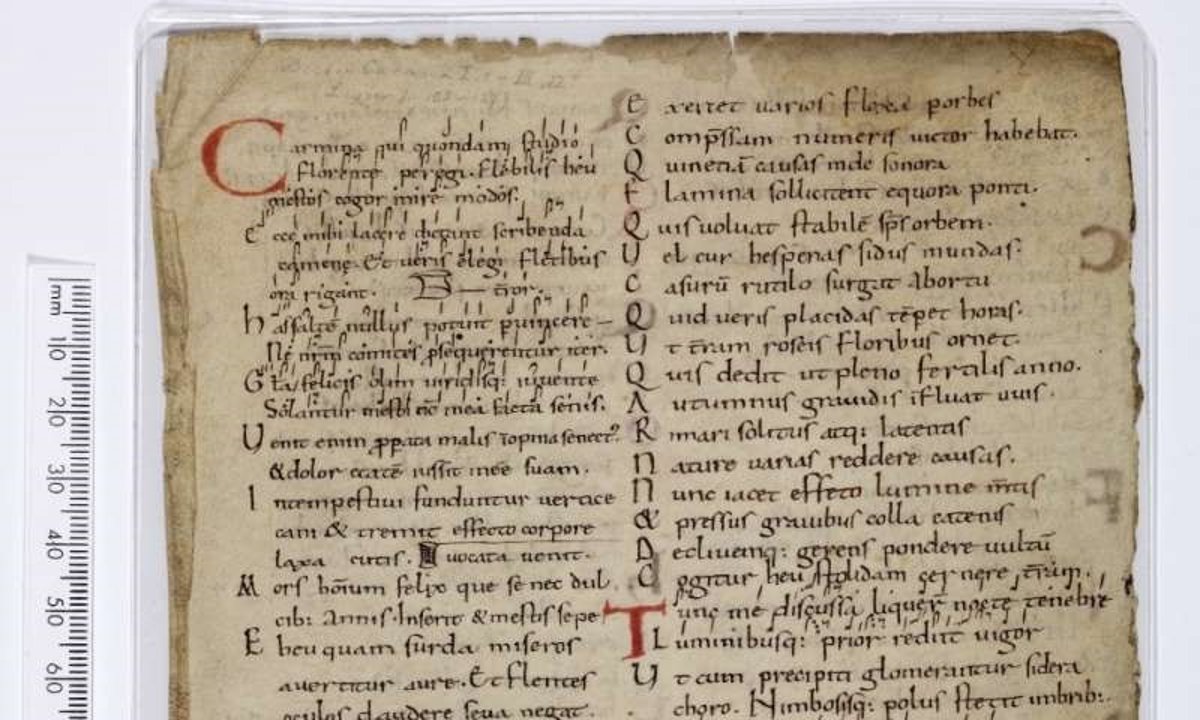 Carmina qui quondam studio
florente peregi. Flebilis heu
mestos cogor inire modos.
Ecce mihi lacere dictant scribenda
camenę. Et ueris elegi fletibus
ora rigant.
has saltē nullus potuit puincere
Ne nr̄m̄ comites psequerentur iter.
Gl̄a felicis olim uiridisq: iuuente
Solantur mesti nc̄ mea facta senis.
Uenit enim ꝓpata malis īopina senect᷒
& dolor etatē iussit inee suam.
Intempestiui funduntur uertice
cani & tremit effecto corpore
laxa cutis. uocata uenit.
Mors hōium felix que se nec dul
cib: annis. Inserit & mestis sepe
Eheu quam surda miseros
auertitur aure. Et flentes
oculos claudere seua negat.
Exercet uarios flexa porbes
Comp̄ssam numeris uictor habebat.
Quinetiā causas inde sonora
Flamina sollicitent equora ponti.
Quis uoluat stabilē sp̄s orbem.
Uel cur hesperias sidus in undas:
Casurū rutilo surgat abortu
Quid ueris placidas tēpet horas.
Ut tr̄ram roseis floribus ornet.
Quis dedit ut pleno fertilis anno.
Autumnus grauidis īfluat uuis.
Rimari solitus atq: latentis
Nature uarias reddere causas.
Nunc iacet effeto lumine m̄tis
& pressus grauibus colla catenis
Decliuemq: gerens pondere uultū
Cogitur heu stolidam cernere tr̄ram.
Tunc me discussa liquer̄ nocte tenebre
Luminibusq: prior rediit uigor
Ut cum precipiti glomerantur sidera
choro. Nimbosisq: polus stetit imbrib:.
mm
10
20
30
40
50
60
C
F